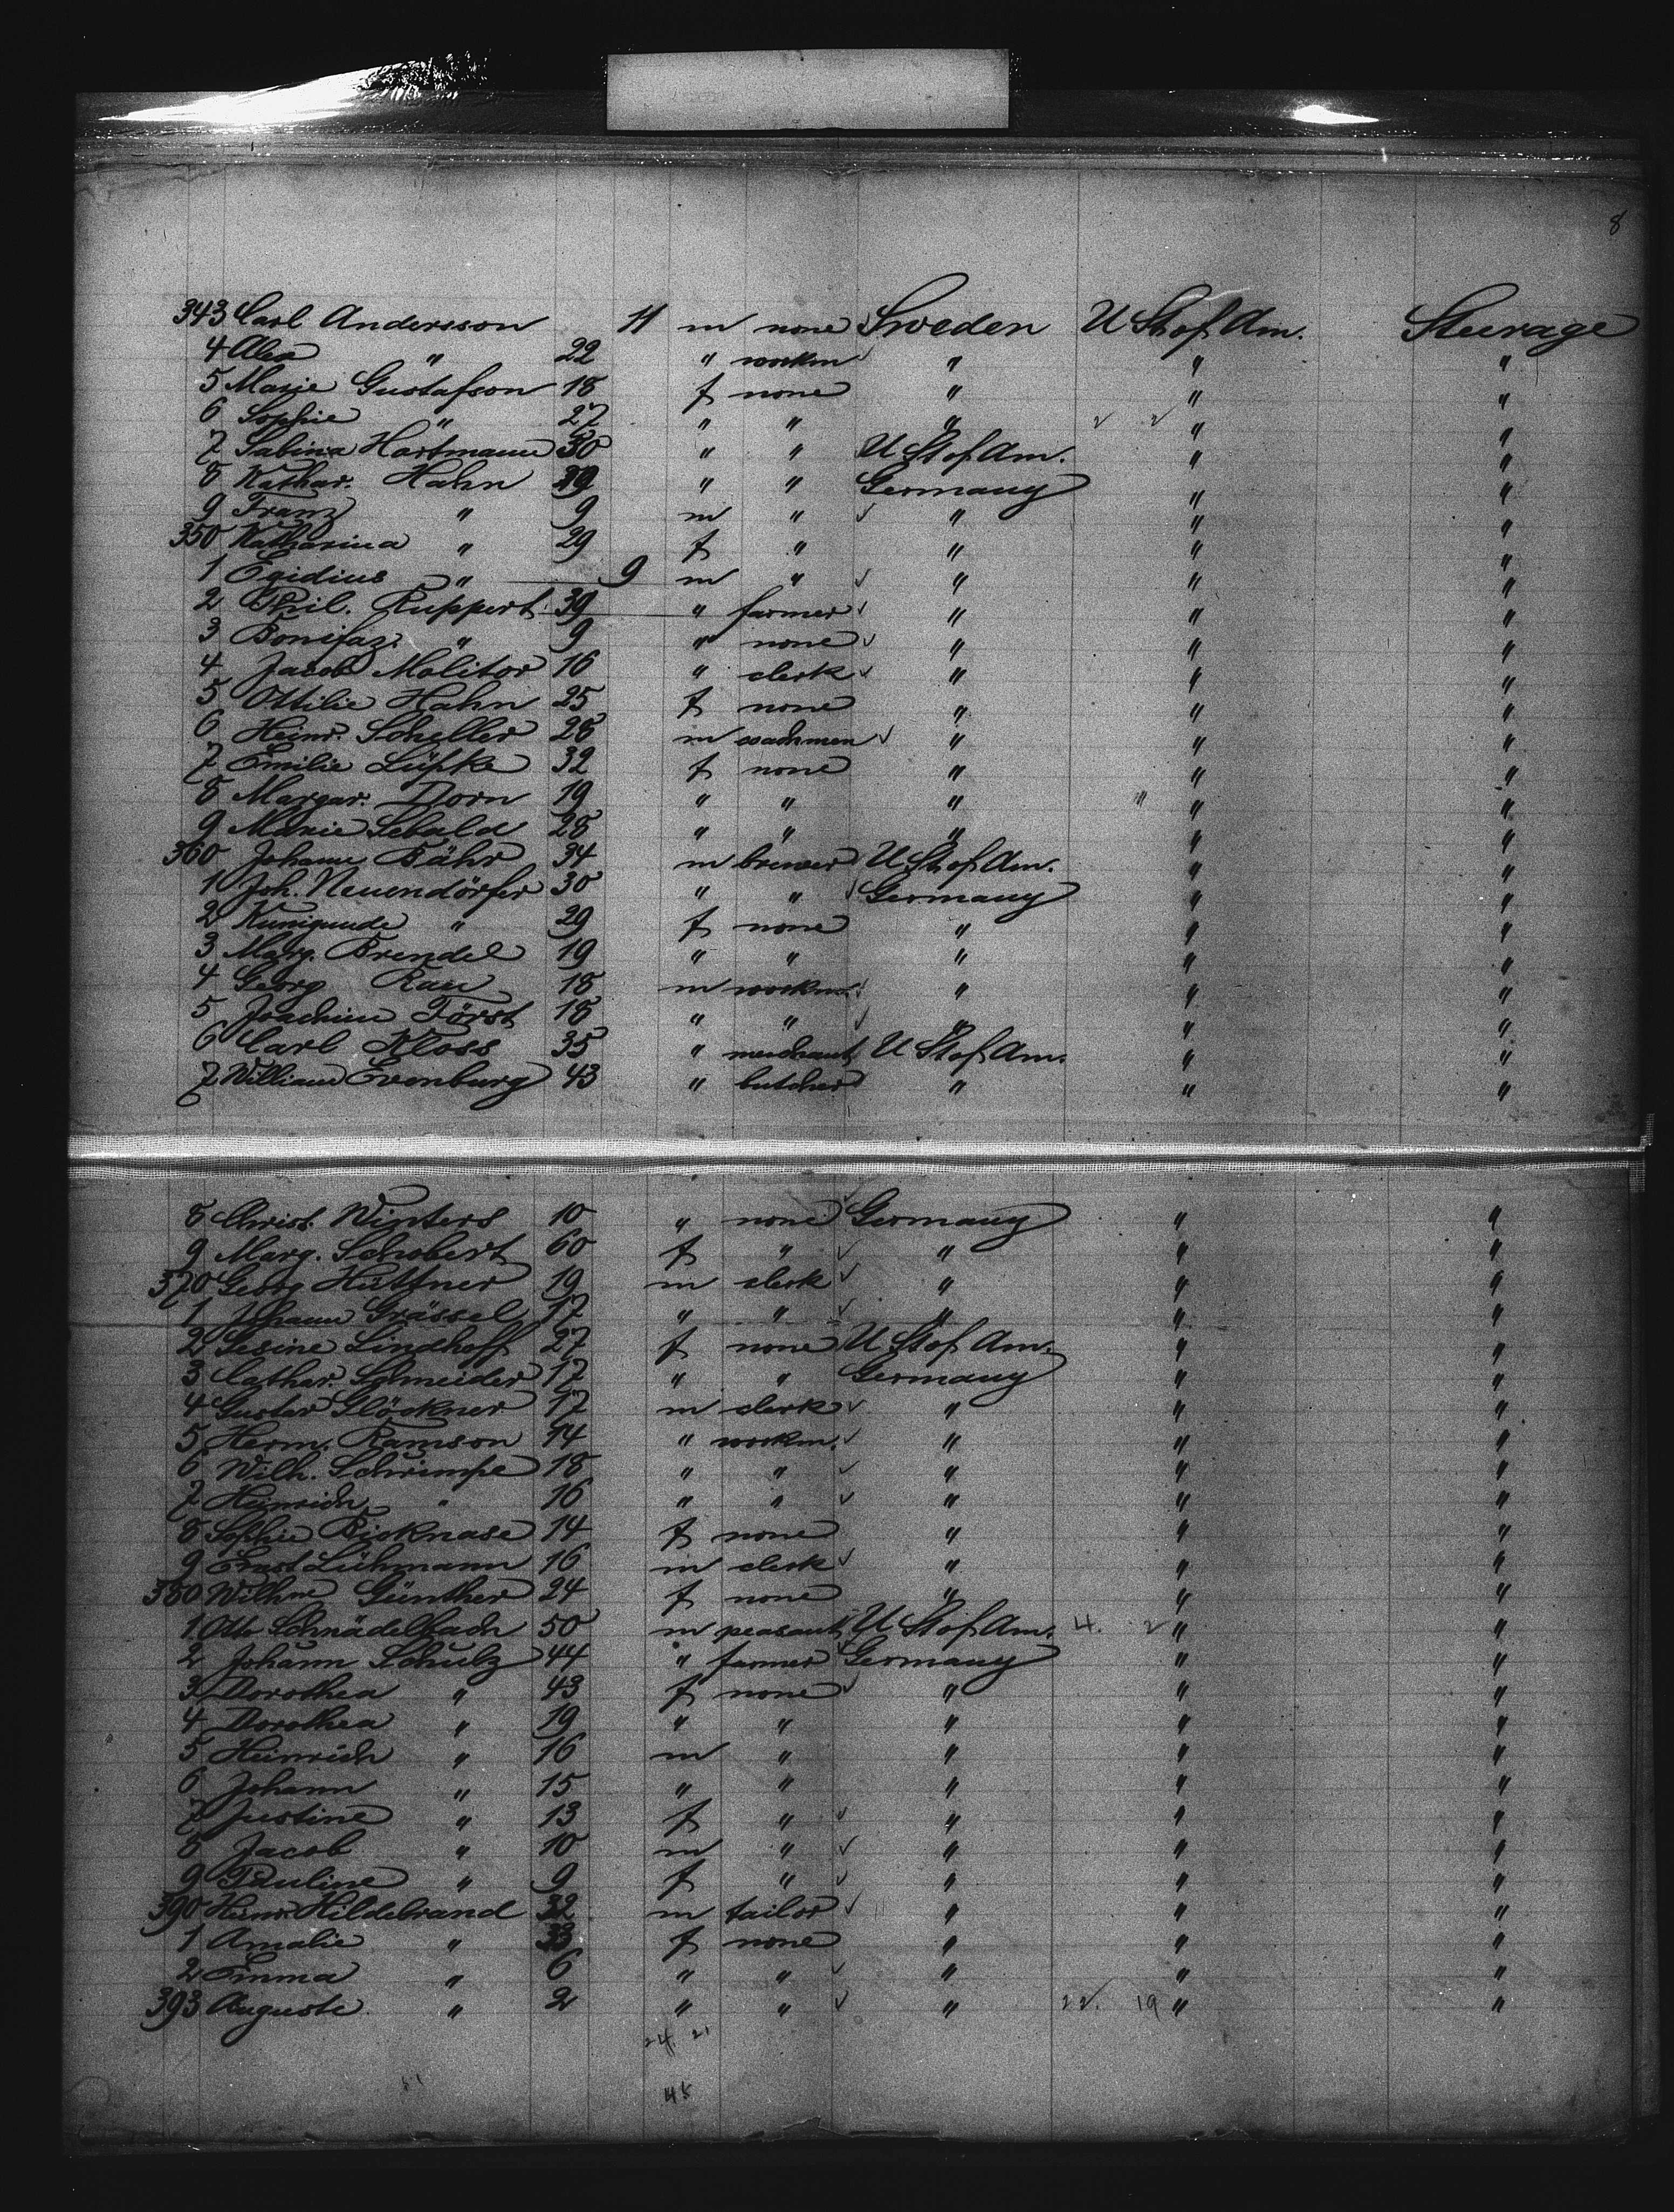 8
343 Carl Andersson 11 m none Sweden U St of Am. Steerage
4 Alex " 22 " workm " " "
5 Marie Gustafson 18 f none " " "
6 Sophie " 27 " " " " "
7 Sabina Hartmann 30 " " U St of Am. " "
8 Kathar. Hahn 29 " " Germany " "
9 Franz " 9 m " " " "
350 Katharina " 29 f " " " "
1 Egidius " 9 m " " " "
2 Phil. Ruppert 39 " farmer " " "
3 Bonifaz " 9 " none " " "
4 Jacob Molitor 16 " clerk " " "
5 Ottilie Hahn 25 f none " " "
6 Heinr. Scheller 28 m " " "
7 Emilie Lüpke 32 f none " " "
8 Margar. Dorn 19 " " " " "
9 Marie Sebald 28 " " " " "
360 Johann Bähr 34 m brewer U St of Am. " "
1 Joh. Neuendörfer 30 " " Germany " "
2 Kunigunde " 29 f none " " "
3 Marg. Brendel 19 " " " " "
4 Georg Rau 18 m workm. " " "
5 Joachim Först 18 " " " " "
6 Carl Kloss 35 " merchant U St of Am. " "
7 William Evenburg 43 " butcher " " "
8 Christ. Winters 10 " none Germany " "
9 Marg. Schobert 60 f " " " "
370 Georg Hüttner 19 m clerk " " "
1 Johann Grässel 17 " " " " "
2 Gesine Lindhoff 27 f none U St of Am. " "
3 Cathar. Schneider 17 " " Germany " "
4 Gustav Glöckner 17 m clerk " " "
5 Herm. Ramson 14 " workm. " " "
6 Wilh. Schrimpe 18 " " " " "
7 Heinrich " 16 " " " " "
8 Sophie Bicknase 14 f none " " "
9 Ernst Lühmann 16 m clerk " " "
380 Wilhme Günther 24 f none " " "
1 Otto Schnädelbach 50 m peasant U St of Am. 4. 2 " "
2 Johann Schulz 44 " farmer Germany " "
3 Dorothea " 43 f none " " "
4 Dorothea " 19 " " " " "
5 Heinrich " 16 m " " " "
6 Johann " 15 " " " " "
7 Justine " 13 f " " " "
8 Jacob " 10 m " " " "
9 Pauline " 9 f " " " "
390 Heinr. Hildebrand 32 m tailor " " "
1 Amalie " 33 f none " " "
2 Emma " 6 " " " " "
393 Auguste " 2 " " " 22. 19 " "
24. 21
45